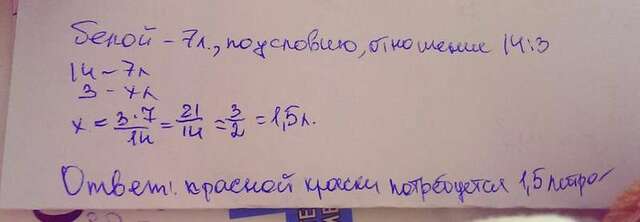 Белой - 7л., по условию, отношение 14:3
14 - 7л
3 - xл
x = 3·7/14 = 21/14 = 3/2 = 1,5л.
Ответ: красной краски потребуется 1,5 литра